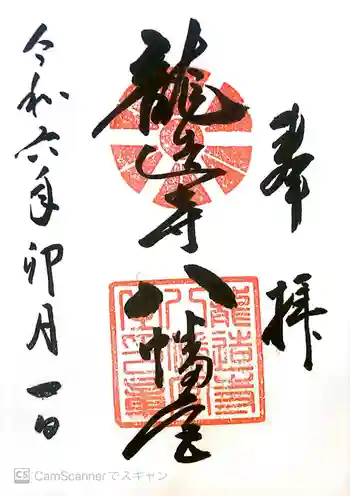 奉拝
龍造寺八幡宮
令和六年卯月一日
CS CamScannerでスキャン